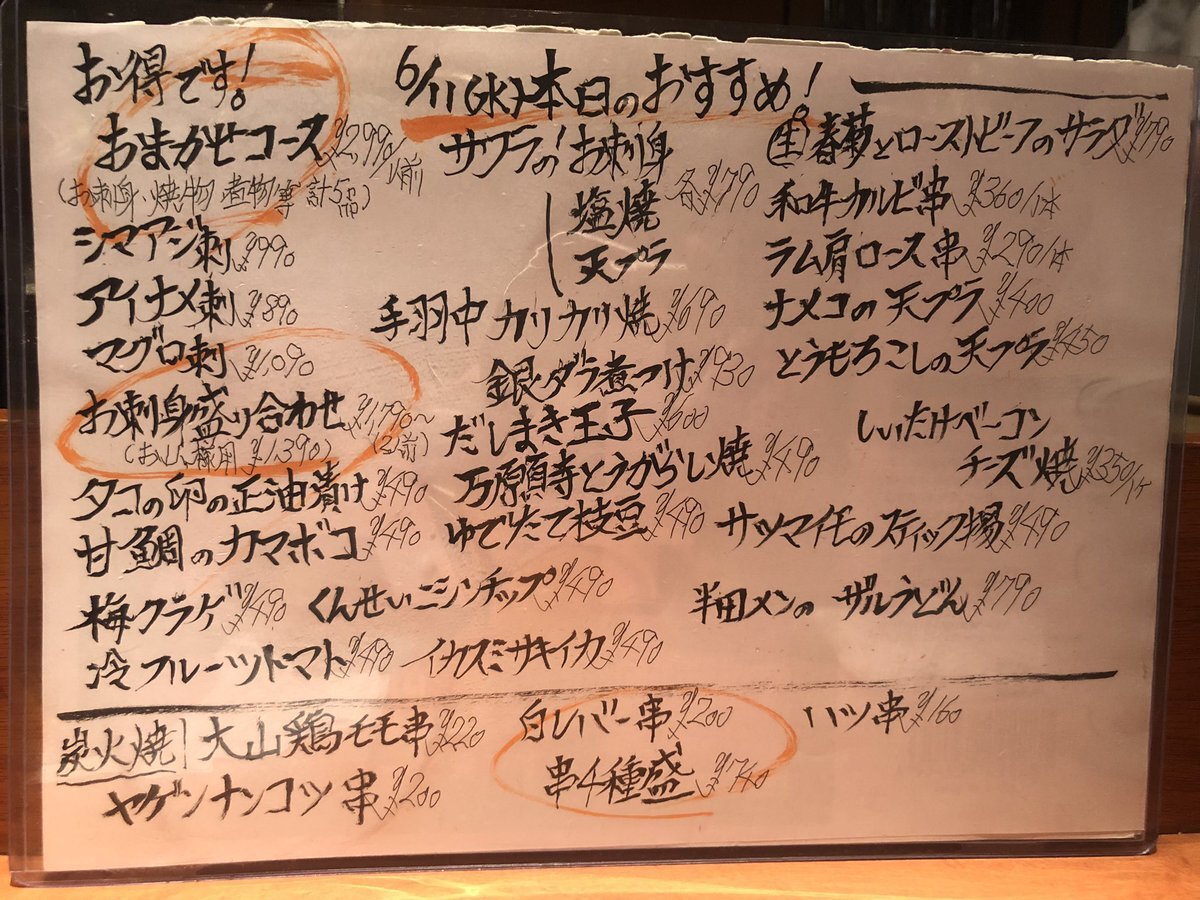 お得です!
おまかせコース ¥2990/1人前
(お刺身・焼物・煮物等 計5品)
シマアジ刺 ¥990
アイナメ刺 ¥890
マグロ刺 ¥1,090
お刺身盛り合わせ ¥1,790〜(2人前)
(お一人様用 ¥1,390)
タコの卵の正油漬け ¥490
甘鯛のカマボコ ¥490
梅クラゲ ¥490
くんせいニシンチップ ¥490
冷フルーツトマト ¥490
イカスミサキイカ ¥490
6/11(水)本日のおすすめ!
サワラのお刺身
塩焼 各¥790
天プラ
手羽中カリカリ焼 ¥690
銀ダラ煮つけ ¥930
だしまき玉子 ¥600
万願寺とうがらし焼 ¥490
ゆでたて枝豆 ¥490
生春菊とローストビーフのサラダ ¥790
和牛カルビ串 ¥360/1本
ラム肩ロース串 ¥290/1本
ナメコの天プラ ¥400
とうもろこしの天プラ ¥450
しいたけベーコン
チーズ焼 ¥350/1ケ
サツマイモのスティック揚 ¥490
半田メンのザルうどん ¥790
炭火焼 大山鶏モモ串 ¥220
白レバー串 ¥200
ハツ串 ¥160
ヤゲンナンコツ串 ¥200
串4種盛 ¥740